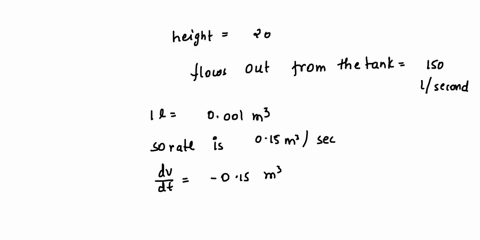 height = 20
flows out from the tank = 150
l/second
1 l = 0.001 m³
so rate is 0.15 m³/ sec
dv/dt = -0.15 m³